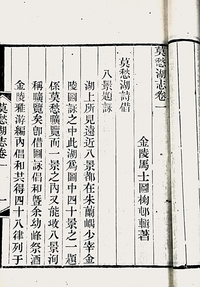 莫愁湖志卷一
金陵馬士圖梅邨輯著
莫愁湖詩借
八景題詠
湖上所見遠近八景都在朱蘭嵎少宰金
陵圖詠之中此湖爲圖中四十景之一題
係莫愁曠覽而一景之內又能收八景洵
稱曠覽矣卽借圖詠倡和曁余幼峰祭酒
金陵雅游編內倡和共得四十八律列于
莫愁湖志卷一